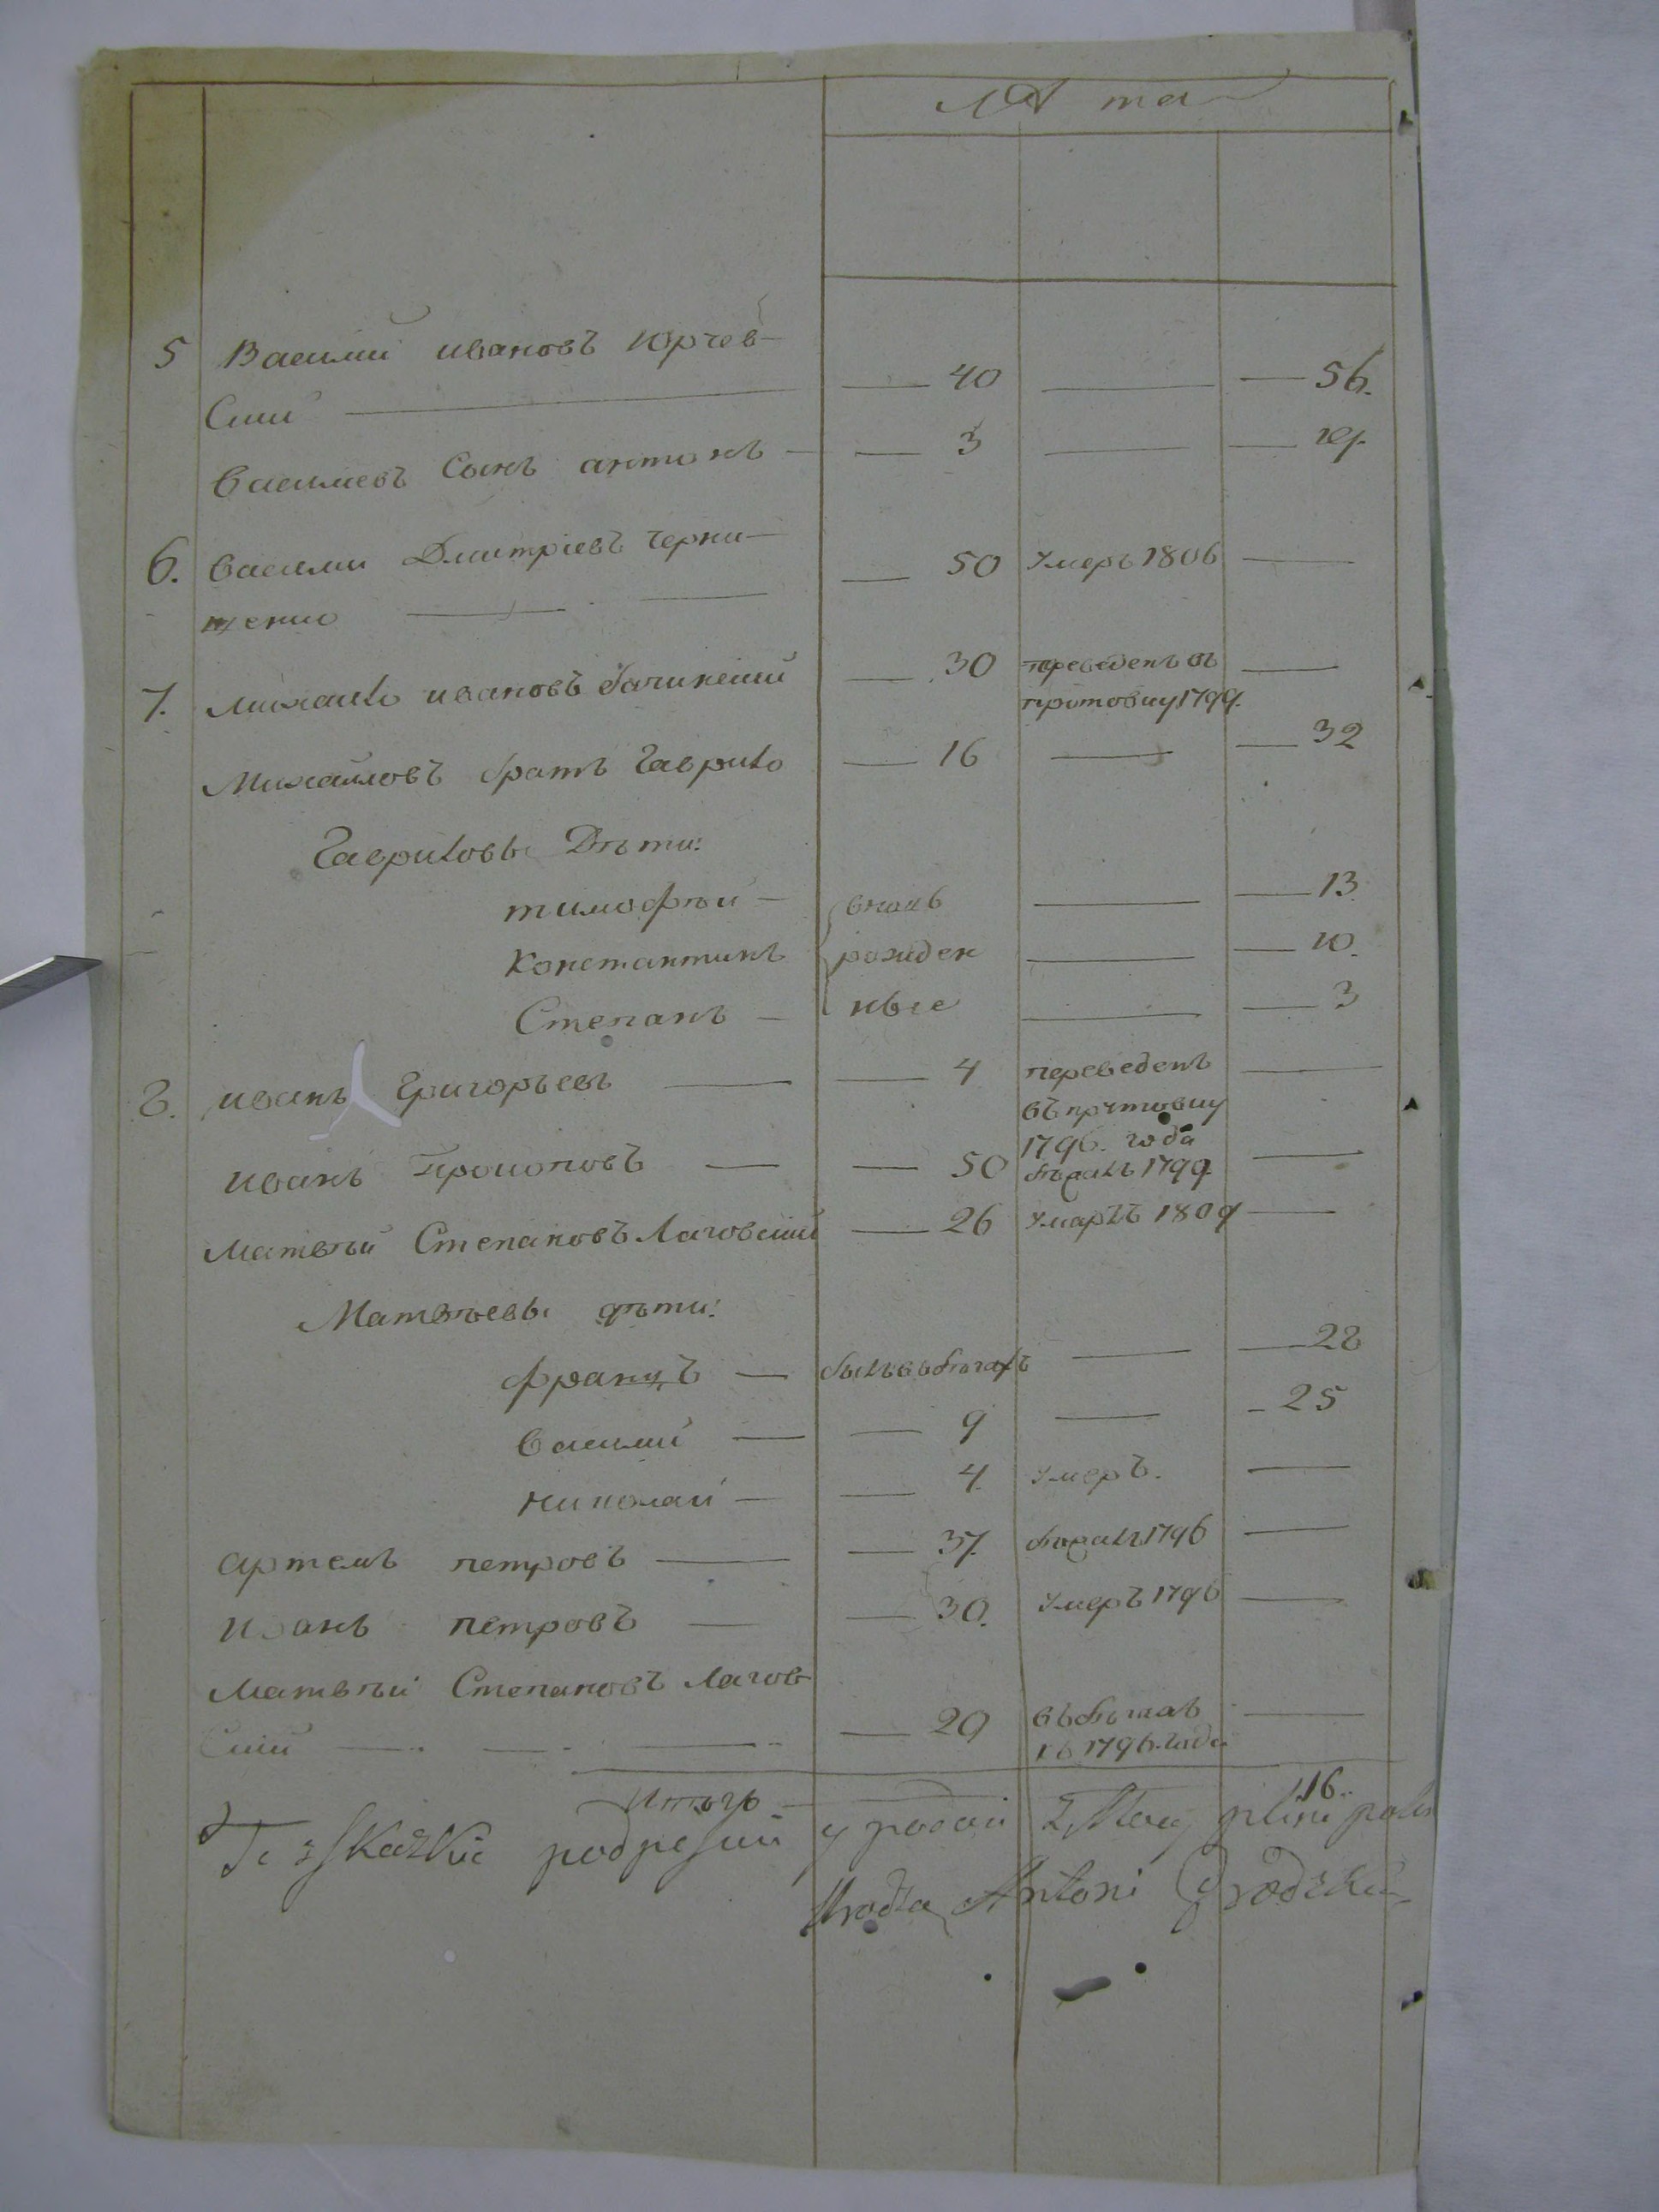 Лѣта
5 Василий ивановъ юрчев-
ский — 40 — 56.
василиевъ Сынъ антонъ — 3 — 19.
6. василий Дмитріевъ черни- — 50 Умеръ 1806 —
щенко
7. михайло ивановъ бачинский — 30 переведенъ въ —
притовку 1799.
Михайловъ братъ Гаврило — 16 — 32
Гавриловы Дѣти:
тимофѣй — вновь — 13.
Константинъ рожден — 10.
Степанъ — ные — 3
8. иванъ Григорьевъ — 4 переведенъ —
въ притовку
1796. года
иванъ Прокоповъ — 50 бѣжалъ 1799. —
матвѣй Степановъ Лаговский — 26 Умаръъ 1809 —
Матвѣевы дѣти:
францъ — былъ въ бѣгахъ — 28
василий — 9 — 25
николай — 4. Умеръ. —
артемъ петровъ — 37. бѣжалъ 1796 —
Иванъ петровъ — 30. Умеръ 1796 —
матвѣй Степановъ Лагов-
ский — 20 въ бѣгахъ —
съ 1796. года
Итого — 16..
Te zSkazkie podpesuii y podaii
Antoni Grodzki